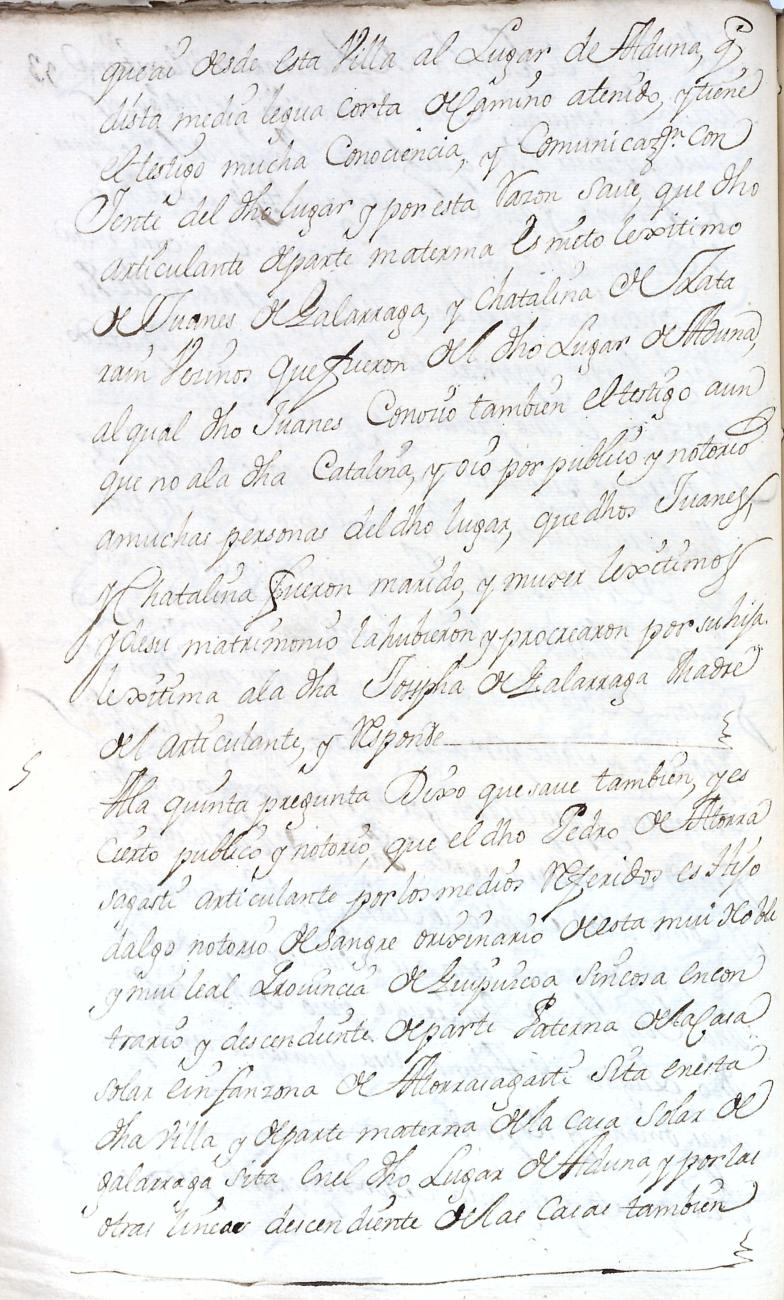 que ai desde esta Villa al Lugar de Aduna, q̃
dista media legua corta de Camino a tenido, y tiene
el testigo mucha Conociencia, y Comunicazⁿ. con
Jente del dho lugar y por esta Razon save, que dho
articulante de parte materna es nieto lexitimo
de Juanes de Galarraga, y Chatalina de Yrata
rain Vecinos que fueron del dho Lugar de Aduna,
al qual dho Juanes Conocio tambien el testigo aun
que no ala dha Catalina, y oio por publico y notorio
a muchas personas del dho lugar, que dhos Juanes,
y Chatalina fueron marido, y muxer lexitimos
y de su matrimonio la hubieron y procrearon por su hija
lexitima ala dha Josepha de Galarraga Madre
del articulante, y Responde
5
A la quinta pregunta Dixo que save tambien, y es
Cierto publico y notorio, que el dho Pedro de Atorra
sagasti articulante por los medios Referidos es Hijo
dalgo notorio de sangre orixinario de esta mui Noble
y mui leal Provincia de Guipuzcoa sin cosa en con
trario y descendiente de parte Paterna de la Casa
solar e infanzona de Atorrasagasti sita en esta
dha Villa y de parte materna de la casa solar de
galarraga sita en el dho Lugar de Aduna, y por las
otras lineas descendiente de las Casas tambien